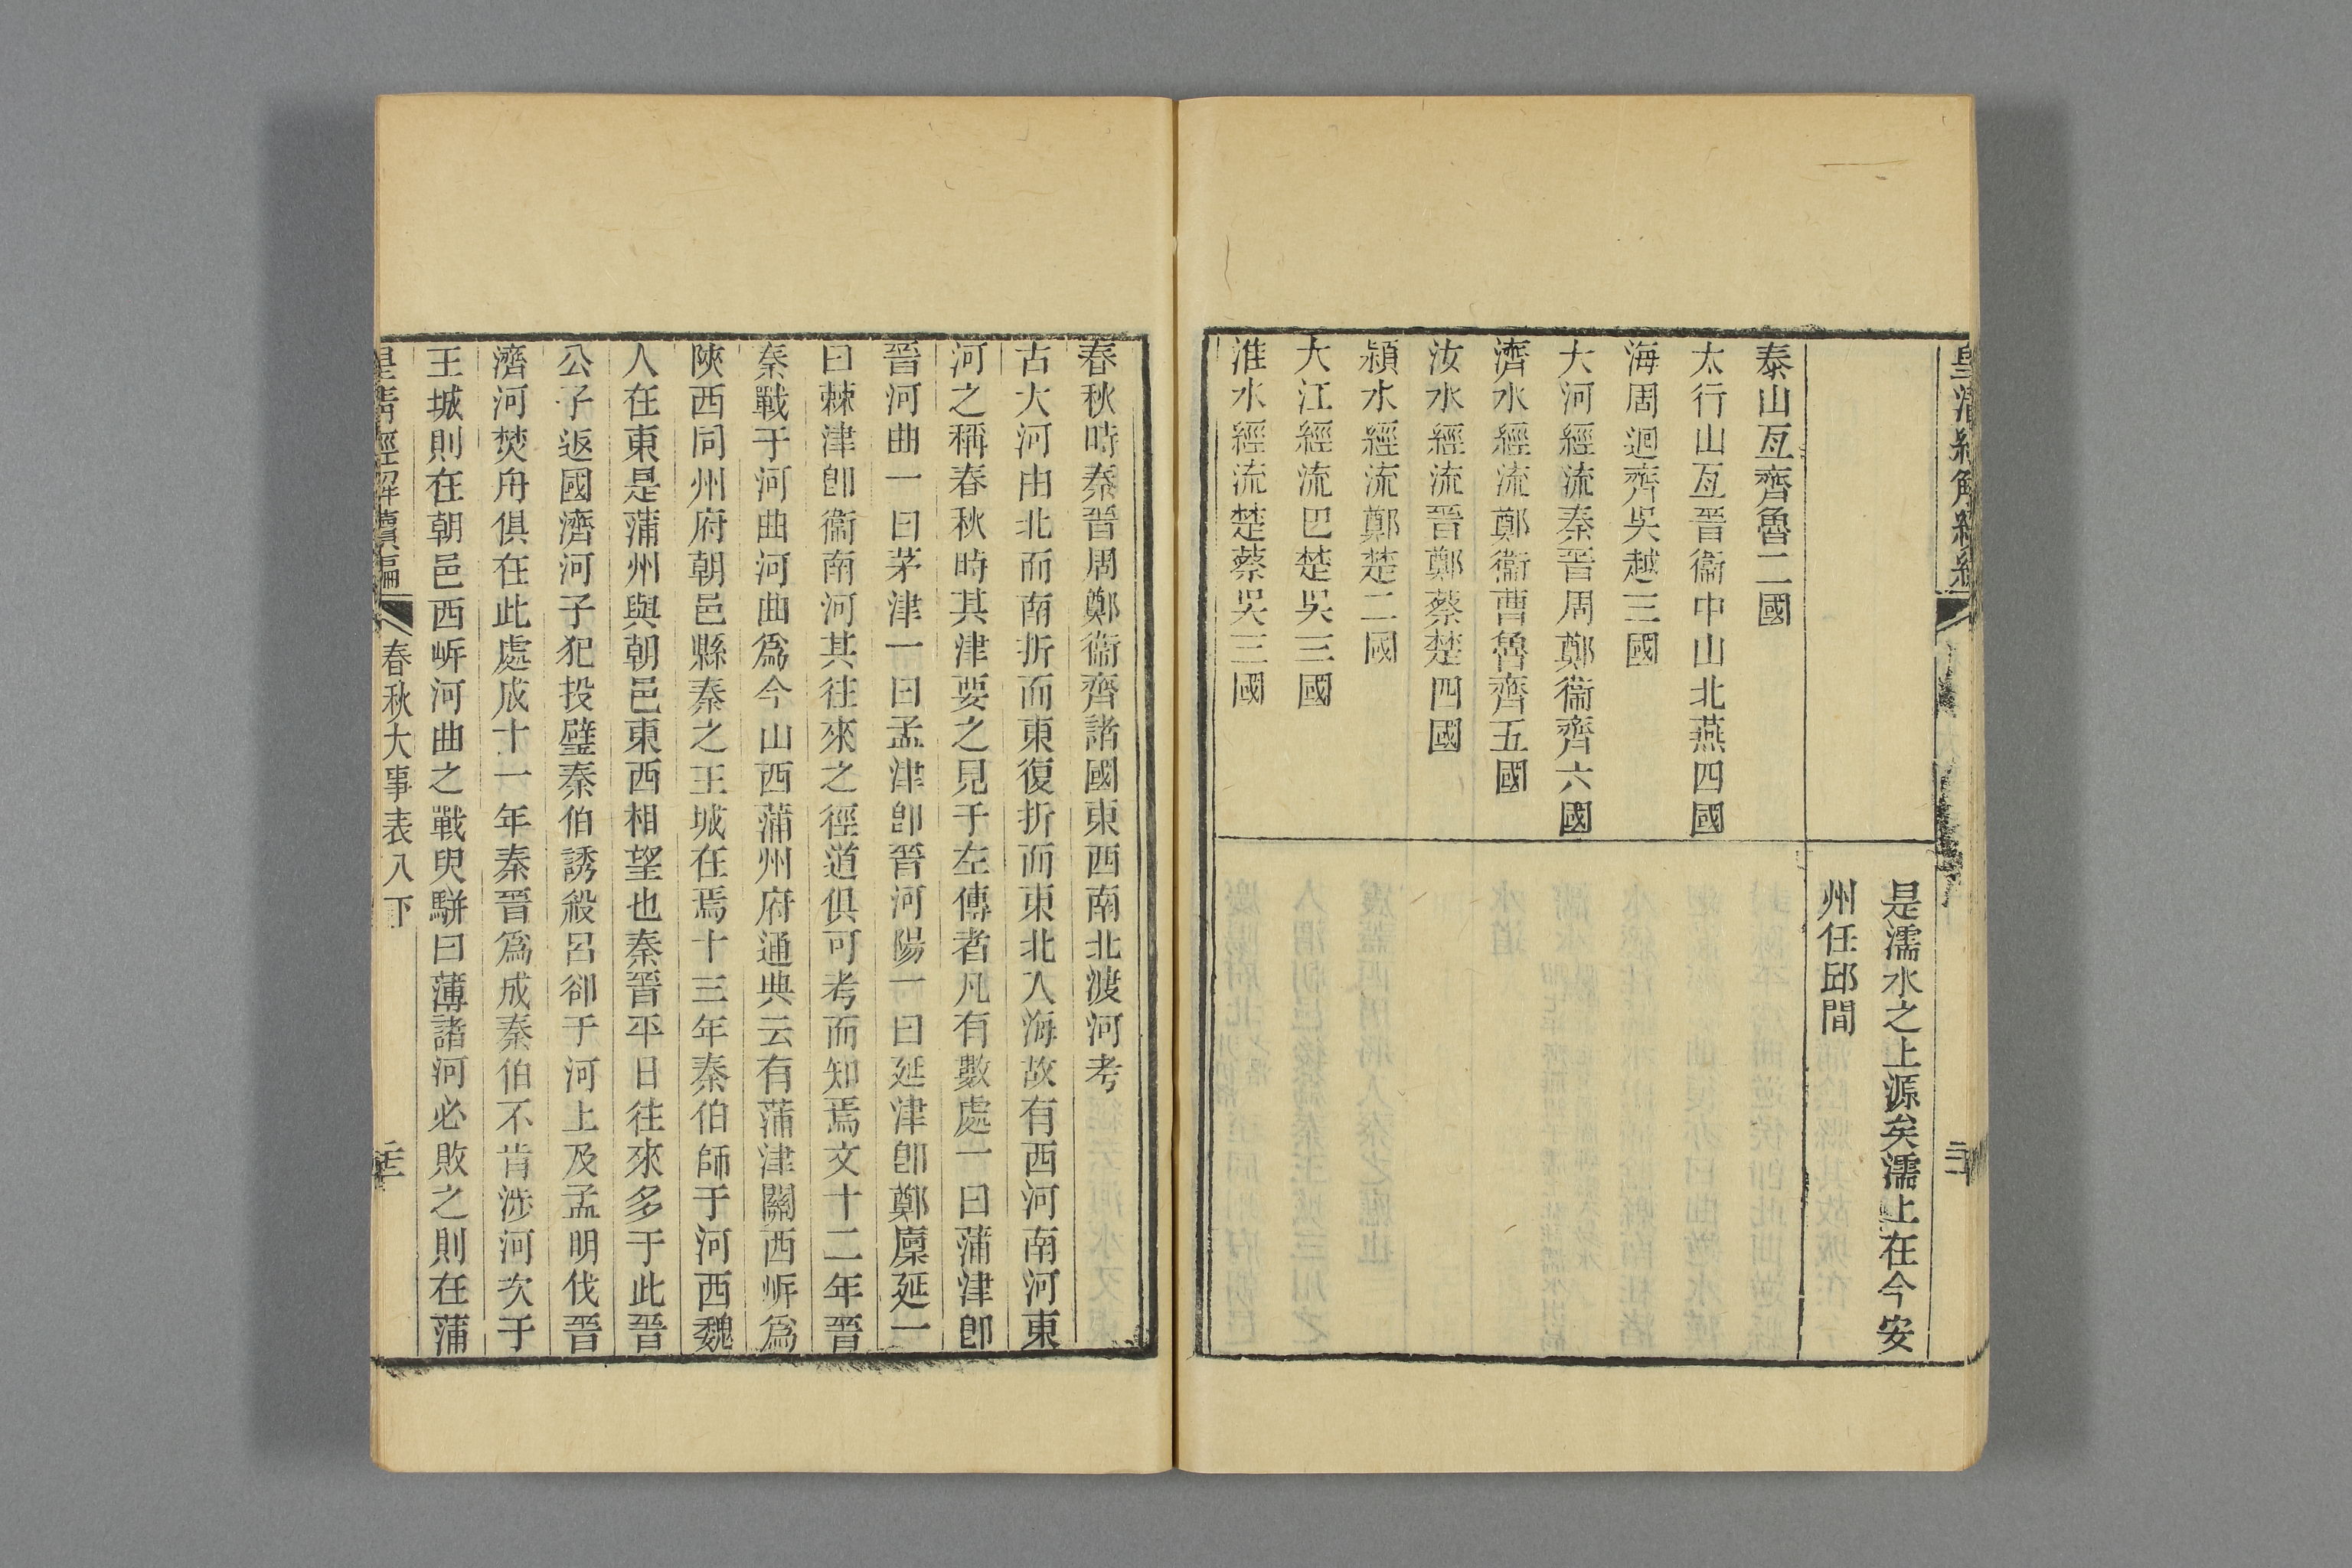 是濡水之上源矣濡上在今安
州任邱間
泰山亙齊魯二國
太行山亙晉衞中山北燕四國
海周迴齊吳越三國
大河經流秦晉周鄭衞齊六國
濟水經流鄭衞曹魯齊五國
汝水經流晉鄭蔡楚四國
潁水經流鄭楚二國
大江經流巴楚吳三國
淮水經流楚蔡吳三國
春秋時秦晉周鄭衞齊諸國東西南北渡河考
古大河由北而南折而東復折而東北入海故有西河南河東
河之稱春秋時其津要之見于左傳者凡有數處一曰蒲津卽
晉河曲一曰茅津一曰孟津卽晉河陽一曰延津卽鄭廩延一
曰棘津卽衞南河其往來之徑道俱可考而知焉文十二年晉
秦戰于河曲河曲爲今山西蒲州府通典云有蒲津關西岍爲
陝西同州府朝邑縣秦之王城在焉十三年秦伯師于河西魏
人在東是蒲州與朝邑東西相望也秦晉平日往來多于此晉
公子返國濟河子犯投璧秦伯誘殺呂郤于河上及孟明伐晉
濟河焚舟俱在此處成十一年秦晉爲成秦伯不肯涉河次于
王城則在朝邑西岍河曲之戰臾騈曰薄諸河必敗之則在蒲
皇清經解續編
春秋大事表八下